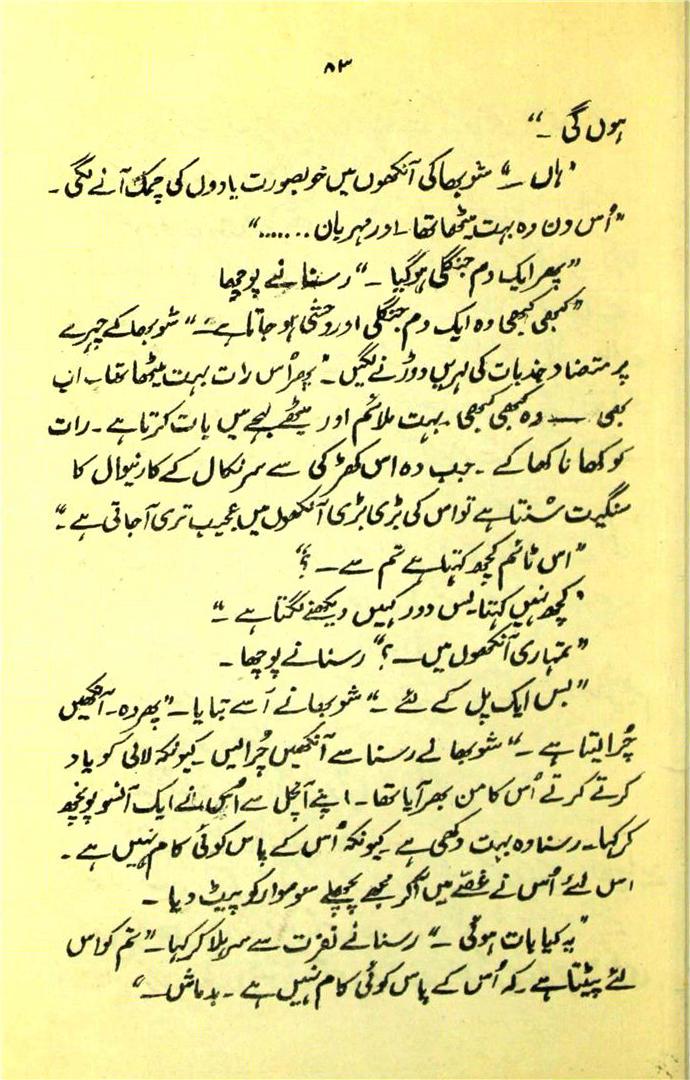 ۸۳
ہوں گی ۔“
”ہاں ۔“ شوبھا کی آنکھوں میں خوبصورت یادوں کی چمک آنے لگی ۔
”اُس دن وہ بہت میٹھا تھا۔ اور مہربان .......“
”پھر ایک دم جنگلی ہو گیا ۔“ رسنا نے پوچھا
”کبھی کبھی وہ ایک دم جنگلی اور وحشی ہو جاتا ہے۔“ شوبھا کے چہرے
پر متضاد جذبات کی لہریں دوڑنے لگیں۔ ”پھر اُس رات بہت میٹھا تھا۔ اب
بھی — وہ کبھی کبھی ۔ بہت ملائم اور میٹھے لہجے میں بات کرتا ہے۔ رات
کو کھانا کھا کے ۔ جب وہ اس کھڑکی سے سر نکال کے کارنیوال کا
سنگیت سُنتا ہے تو اس کی بڑی بڑی آنکھوں میں عجیب تری آ جاتی ہے ۔“
”اس ٹائم کچھ کہتا ہے تم سے — ؟“
”کچھ نہیں کہتا۔ بس دور کہیں دیکھنے لگتا ہے ۔“
”تمہاری آنکھوں میں — ؟“ رسنا نے پوچھا ۔
”بس ایک پل کے لئے ۔“ شوبھا نے اُسے بتایا ۔ ”پھر وہ ۔ آنکھیں
چُرا لیتا ہے ۔“ شوبھا نے رسنا سے آنکھیں چُرا لیں۔ کیونکہ لالی کو یاد
کرتے کرتے اُس کا من بھر آیا تھا ۔ اپنے آنچل سے اُس نے ایک آنسو پونچھ
کر کہا۔ رسنا وہ بہت دکھی ہے۔ کیونکہ اُس کے پاس کوئی کام نہیں ہے ۔
اس لئے اُس نے غصّے میں آ کر مجھے پچھلے سوموار کو پیٹ دیا ۔
”یہ کیا بات ہوئی ۔“ رسنا نے نفرت سے سر ہلا کر کہا ۔ ”تم کو اس
لئے پیٹتا ہے۔ کہ اُس کے پاس کوئی کام نہیں ہے ۔ بدماش ۔“